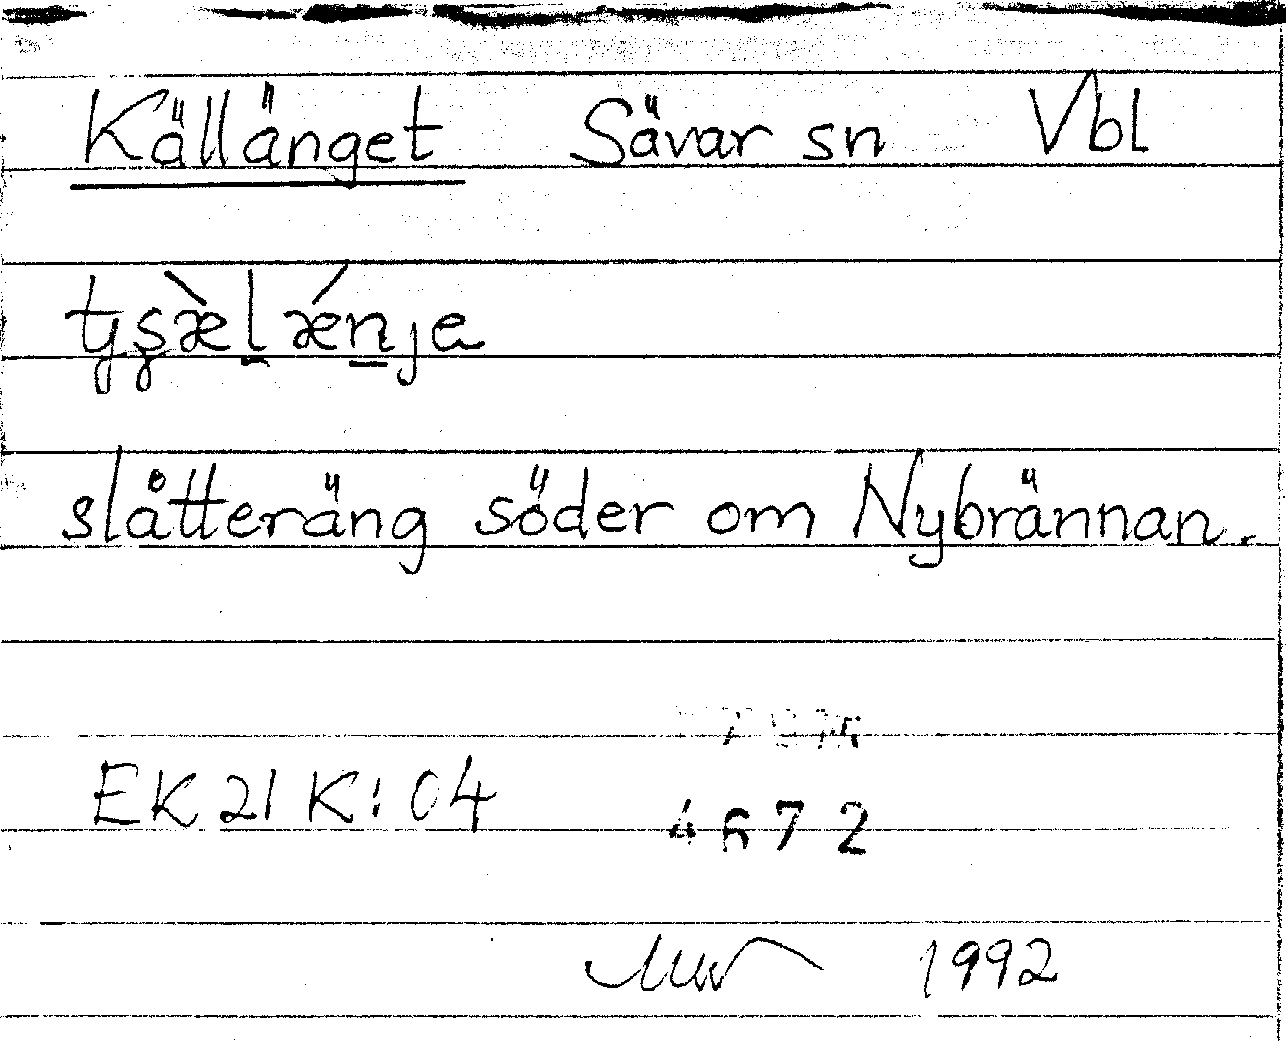 Källänget Sävar sn Vbl
tjʂæ̀l̲ǽn̲je
slåtteräng söder om Nybrännan.
EK 21 K: 04
4672
1992